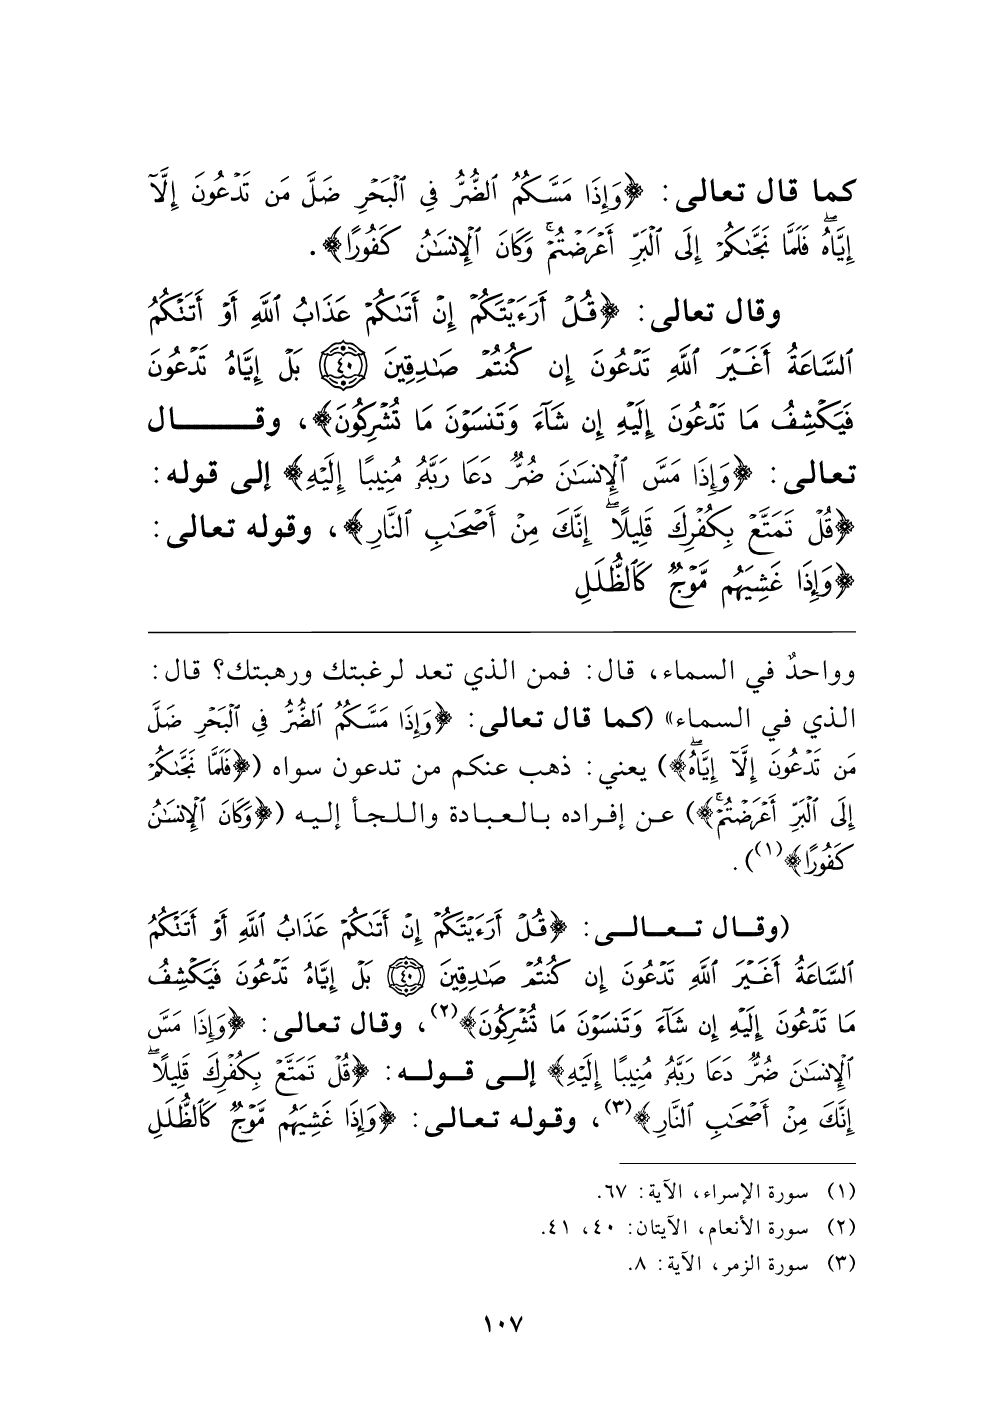 كما قال تعالى: ﴿وَإِذَا مَسَّكُمُ ٱلضُّرُّ فِي ٱلْبَحْرِ ضَلَّ مَن تَدْعُونَ إِلَّآ
إِيَّاهُۖ فَلَمَّا نَجَّىٰكُمْ إِلَى ٱلْبَرِّ أَعْرَضْتُمْۚ وَكَانَ ٱلْإِنسَٰنُ كَفُورًا﴾.
وقال تعالى: ﴿قُلْ أَرَءَيْتَكُمْ إِنْ أَتَىٰكُمْ عَذَابُ ٱللَّهِ أَوْ أَتَتْكُمُ
ٱلسَّاعَةُ أَغَيْرَ ٱللَّهِ تَدْعُونَ إِن كُنتُمْ صَٰدِقِينَ ۝٤٠ بَلْ إِيَّاهُ تَدْعُونَ
فَيَكْشِفُ مَا تَدْعُونَ إِلَيْهِ إِن شَآءَ وَتَنسَوْنَ مَا تُشْرِكُونَ﴾، وقال
تعالى: ﴿وَإِذَا مَسَّ ٱلْإِنسَٰنَ ضُرٌّ دَعَا رَبَّهُۥ مُنِيبًا إِلَيْهِ﴾ إلى قوله:
﴿قُلْ تَمَتَّعْ بِكُفْرِكَ قَلِيلًاۖ إِنَّكَ مِنْ أَصْحَٰبِ ٱلنَّارِ﴾، وقوله تعالى:
﴿وَإِذَا غَشِيَهُم مَّوْجٌ كَٱلظُّلَلِ
وواحدٌ في السماء، قال: فمن الذي تعد لرغبتك ورهبتك؟ قال:
الذي في السماء» (كما قال تعالى: ﴿وَإِذَا مَسَّكُمُ ٱلضُّرُّ فِي ٱلْبَحْرِ ضَلَّ
مَن تَدْعُونَ إِلَّآ إِيَّاهُۖ﴾) يعني: ذهب عنكم من تدعون سواه (﴿فَلَمَّا نَجَّىٰكُمْ
إِلَى ٱلْبَرِّ أَعْرَضْتُمْۚ﴾) عن إفراده بالعبادة واللجأ إليه (﴿وَكَانَ ٱلْإِنسَٰنُ
كَفُورًا﴾(١)).
(وقال تعالى: ﴿قُلْ أَرَءَيْتَكُمْ إِنْ أَتَىٰكُمْ عَذَابُ ٱللَّهِ أَوْ أَتَتْكُمُ
ٱلسَّاعَةُ أَغَيْرَ ٱللَّهِ تَدْعُونَ إِن كُنتُمْ صَٰدِقِينَ ۝٤٠ بَلْ إِيَّاهُ تَدْعُونَ فَيَكْشِفُ
مَا تَدْعُونَ إِلَيْهِ إِن شَآءَ وَتَنسَوْنَ مَا تُشْرِكُونَ﴾(٢)، وقال تعالى: ﴿وَإِذَا مَسَّ
ٱلْإِنسَٰنَ ضُرٌّ دَعَا رَبَّهُۥ مُنِيبًا إِلَيْهِ﴾ إلى قوله: ﴿قُلْ تَمَتَّعْ بِكُفْرِكَ قَلِيلًاۖ
إِنَّكَ مِنْ أَصْحَٰبِ ٱلنَّارِ﴾(٣)، وقوله تعالى: ﴿وَإِذَا غَشِيَهُم مَّوْجٌ كَٱلظُّلَلِ
(١) سورة الإسراء، الآية: ٦٧.
(٢) سورة الأنعام، الآيتان: ٤٠، ٤١.
(٣) سورة الزمر، الآية: ٨.
١٠٧